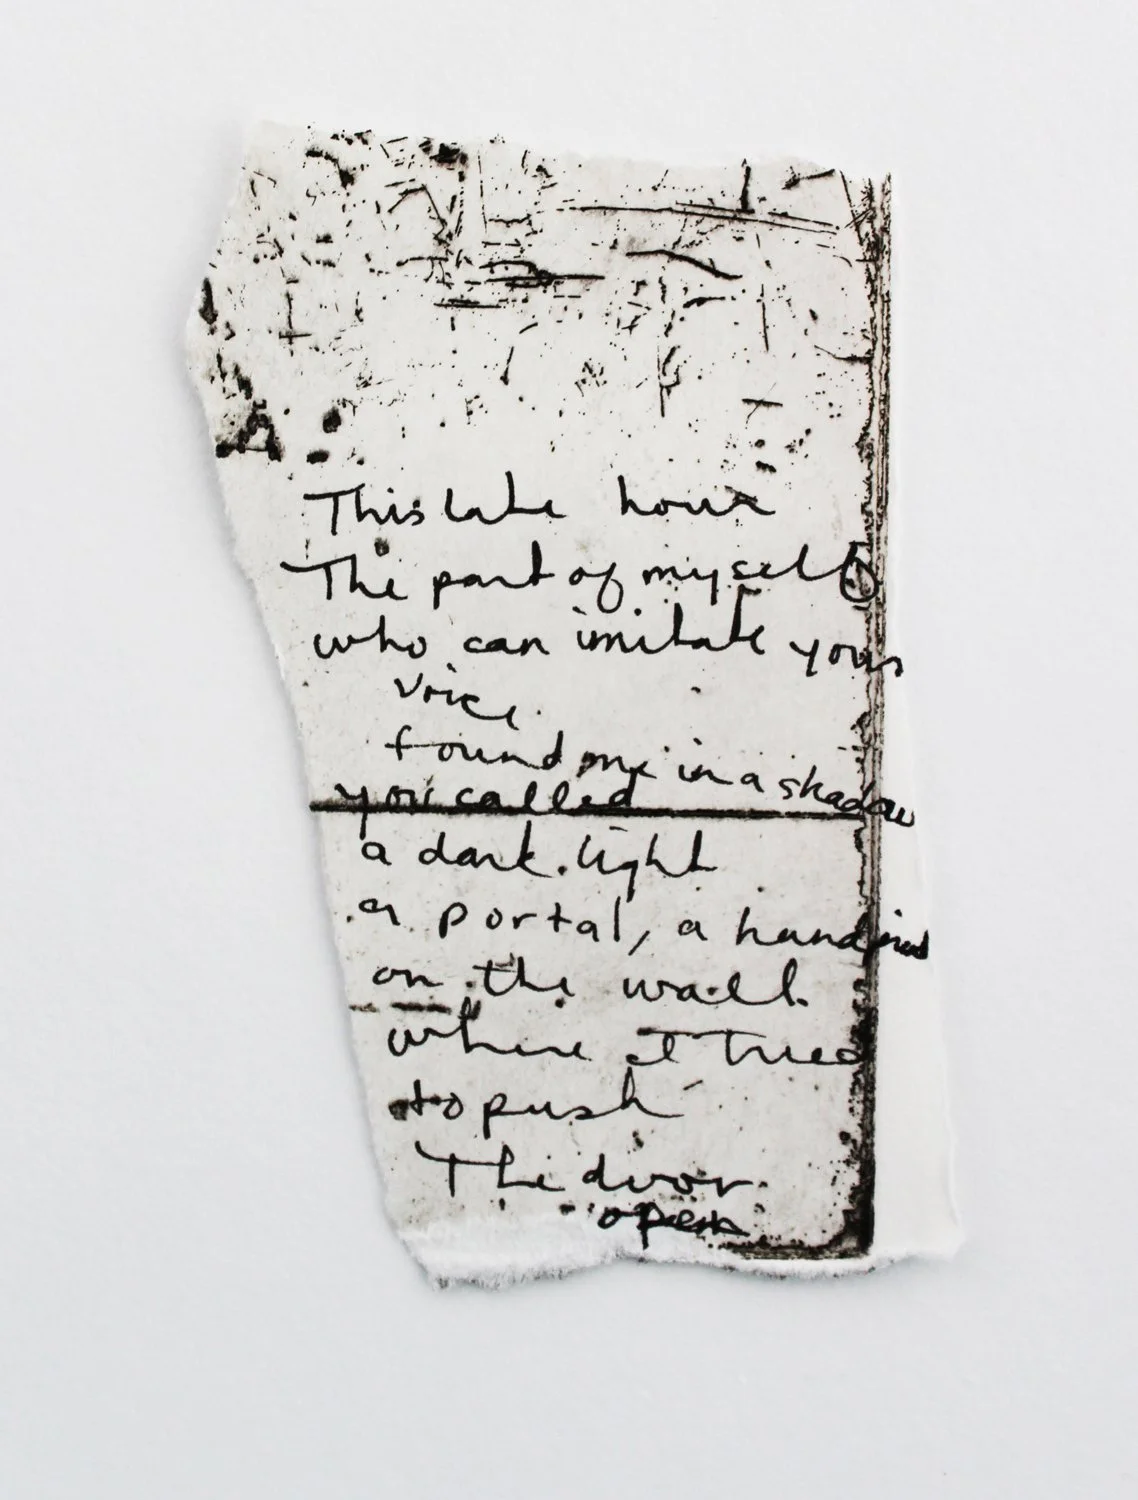 This late hour
The part of myself
who can imitate your
voice
found me in a shadow
you called
a dark light
a portal, a hand
on the wall
where I tried
to push
The door
open